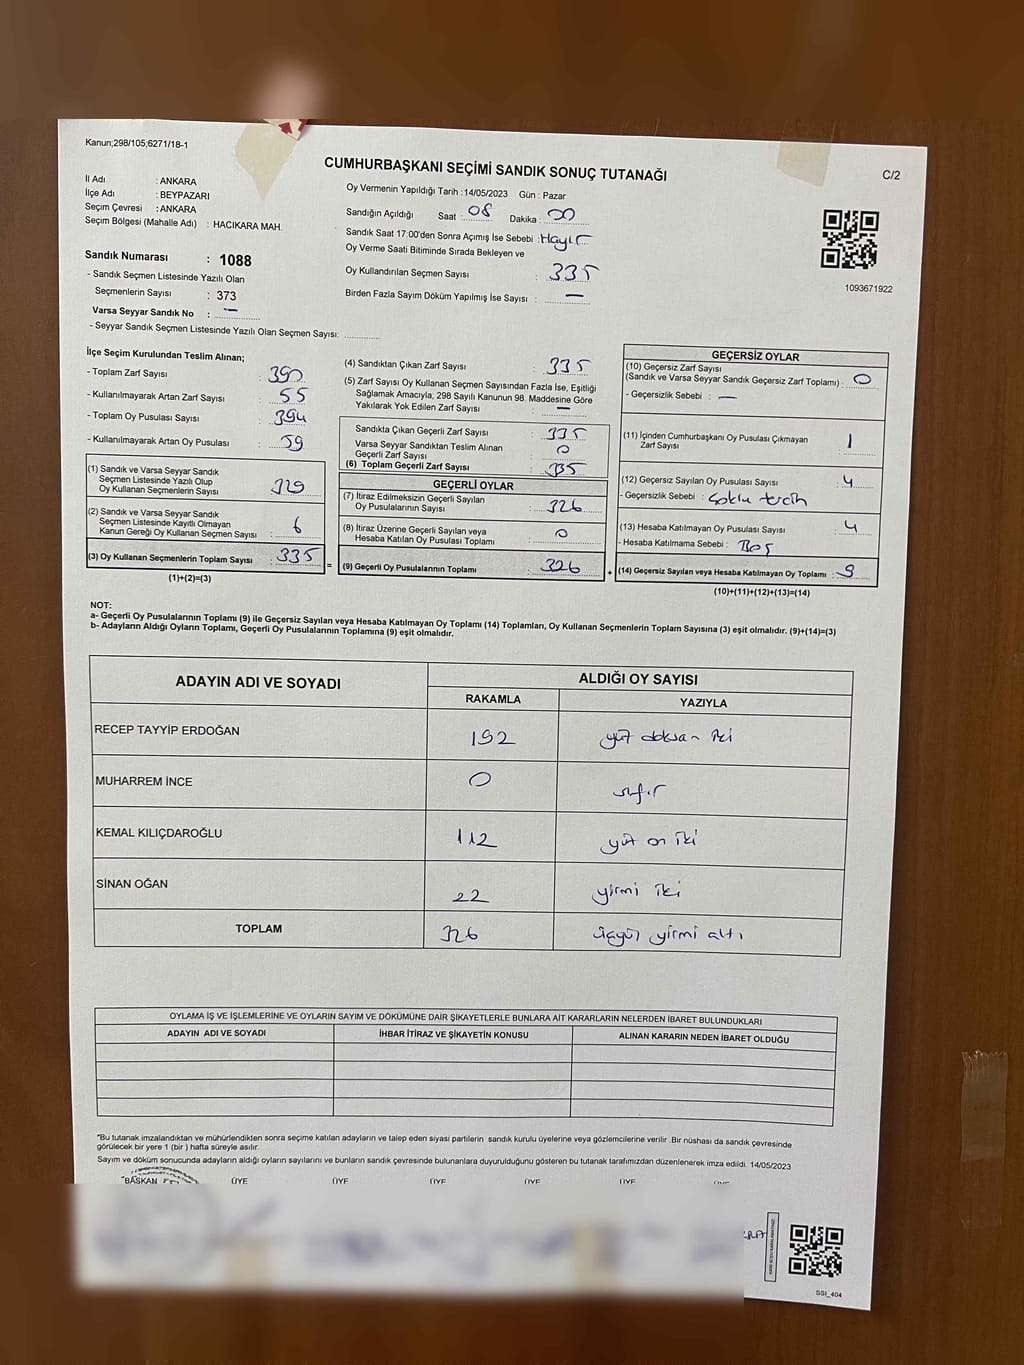 Kanun;298/105;6271/18-1
CUMHURBAŞKANI SEÇİMİ SANDIK SONUÇ TUTANAĞI
C/2
İl Adı : ANKARA
İlçe Adı : BEYPAZARI
Seçim Çevresi : ANKARA
Seçim Bölgesi (Mahalle Adı) : HACIKARA MAH.
Sandık Numarası : 1088
- Sandık Seçmen Listesinde Yazılı Olan
Seçmenlerin Sayısı : 373
Varsa Seyyar Sandık No : —
- Seyyar Sandık Seçmen Listesinde Yazılı Olan Seçmen Sayısı:
Oy Vermenin Yapıldığı Tarih :14/05/2023 Gün : Pazar
Sandığın Açıldığı Saat : 08 Dakika : 00
Sandık Saat 17:00'den Sonra Açımış İse Sebebi : Hayır
Oy Verme Saati Bitiminde Sırada Bekleyen ve
Oy Kullandırılan Seçmen Sayısı : 335
Birden Fazla Sayım Döküm Yapılmış İse Sayısı : —
1093671922
İlçe Seçim Kurulundan Teslim Alınan;
- Toplam Zarf Sayısı : 390
- Kullanılmayarak Artan Zarf Sayısı : 55
- Toplam Oy Pusulası Sayısı : 394
- Kullanılmayarak Artan Oy Pusulası : 59
(1) Sandık ve Varsa Seyyar Sandık
Seçmen Listesinde Yazılı Olup
Oy Kullanan Seçmenlerin Sayısı : 329
(2) Sandık ve Varsa Seyyar Sandık
Seçmen Listesinde Kayıtlı Olmayan
Kanun Gereği Oy Kullanan Seçmen Sayısı : 6
(3) Oy Kullanan Seçmenlerin Toplam Sayısı : 335
(1)+(2)=(3)
(4) Sandıktan Çıkan Zarf Sayısı : 335
(5) Zarf Sayısı Oy Kullanan Seçmen Sayısından Fazla İse, Eşitliği
Sağlamak Amacıyla; 298 Sayılı Kanunun 98. Maddesine Göre
Yakılarak Yok Edilen Zarf Sayısı : —
Sandıkta Çıkan Geçerli Zarf Sayısı : 335
Varsa Seyyar Sandıktan Teslim Alınan
Geçerli Zarf Sayısı : 0
(6) Toplam Geçerli Zarf Sayısı : 335
GEÇERLİ OYLAR
(7) İtiraz Edilmeksizin Geçerli Sayılan
Oy Pusulalarının Sayısı : 326
(8) İtiraz Üzerine Geçerli Sayılan veya
Hesaba Katılan Oy Pusulası Toplamı : 0
= (9) Geçerli Oy Pusulalarının Toplamı : 326
GEÇERSİZ OYLAR
(10) Geçersiz Zarf Sayısı
(Sandık ve Varsa Seyyar Sandık Geçersiz Zarf Toplamı) : 0
- Geçersizlik Sebebi : —
(11) İçinden Cumhurbaşkanı Oy Pusulası Çıkmayan
Zarf Sayısı : 1
(12) Geçersiz Sayılan Oy Pusulası Sayısı : 4
- Geçersizlik Sebebi : Çoklu tercih
(13) Hesaba Katılmayan Oy Pusulası Sayısı : 4
- Hesaba Katılmama Sebebi : Boş
+ (14) Geçersiz Sayılan veya Hesaba Katılmayan Oy Toplamı : 9
(10)+(11)+(12)+(13)=(14)
NOT:
a- Geçerli Oy Pusulalarının Toplamı (9) ile Geçersiz Sayılan veya Hesaba Katılmayan Oy Toplamı (14) Toplamları, Oy Kullanan Seçmenlerin Toplam Sayısına (3) eşit olmalıdır. (9)+(14)=(3)
b- Adayların Aldığı Oyların Toplamı, Geçerli Oy Pusulalarının Toplamına (9) eşit olmalıdır.
ADAYIN ADI VE SOYADI ALDIĞI OY SAYISI
RAKAMLA YAZIYLA
RECEP TAYYİP ERDOĞAN 192 yüz doksan iki
MUHARREM İNCE 0 sıfır
KEMAL KILIÇDAROĞLU 112 yüz on iki
SİNAN OĞAN 22 yirmi iki
TOPLAM 326 üçyüz yirmi altı
OYLAMA İŞ VE İŞLEMLERİNE VE OYLARIN SAYIM VE DÖKÜMÜNE DAİR ŞİKAYETLERLE BUNLARA AİT KARARLARIN NELERDEN İBARET BULUNDUKLARI
ADAYIN ADI VE SOYADI İHBAR İTİRAZ VE ŞİKAYETİN KONUSU ALINAN KARARIN NEDEN İBARET OLDUĞU
"Bu tutanak imzalandıktan ve mühürlendikten sonra seçime katılan adayların ve talep eden siyasi partilerin sandık kurulu üyelerine veya gözlemcilerine verilir .Bir nüshası da sandık çevresinde
görülecek bir yere 1 (bir ) hafta süreyle asılır.
Sayım ve döküm sonucunda adayların aldığı oyların sayılarını ve bunların sandık çevresinde bulunanlara duyurulduğunu gösteren bu tutanak tarafımızdan düzenlenerek imza edildi. 14/05/2023
BAŞKAN ÜYE ÜYE ÜYE ÜYE ÜYE
SSI_404